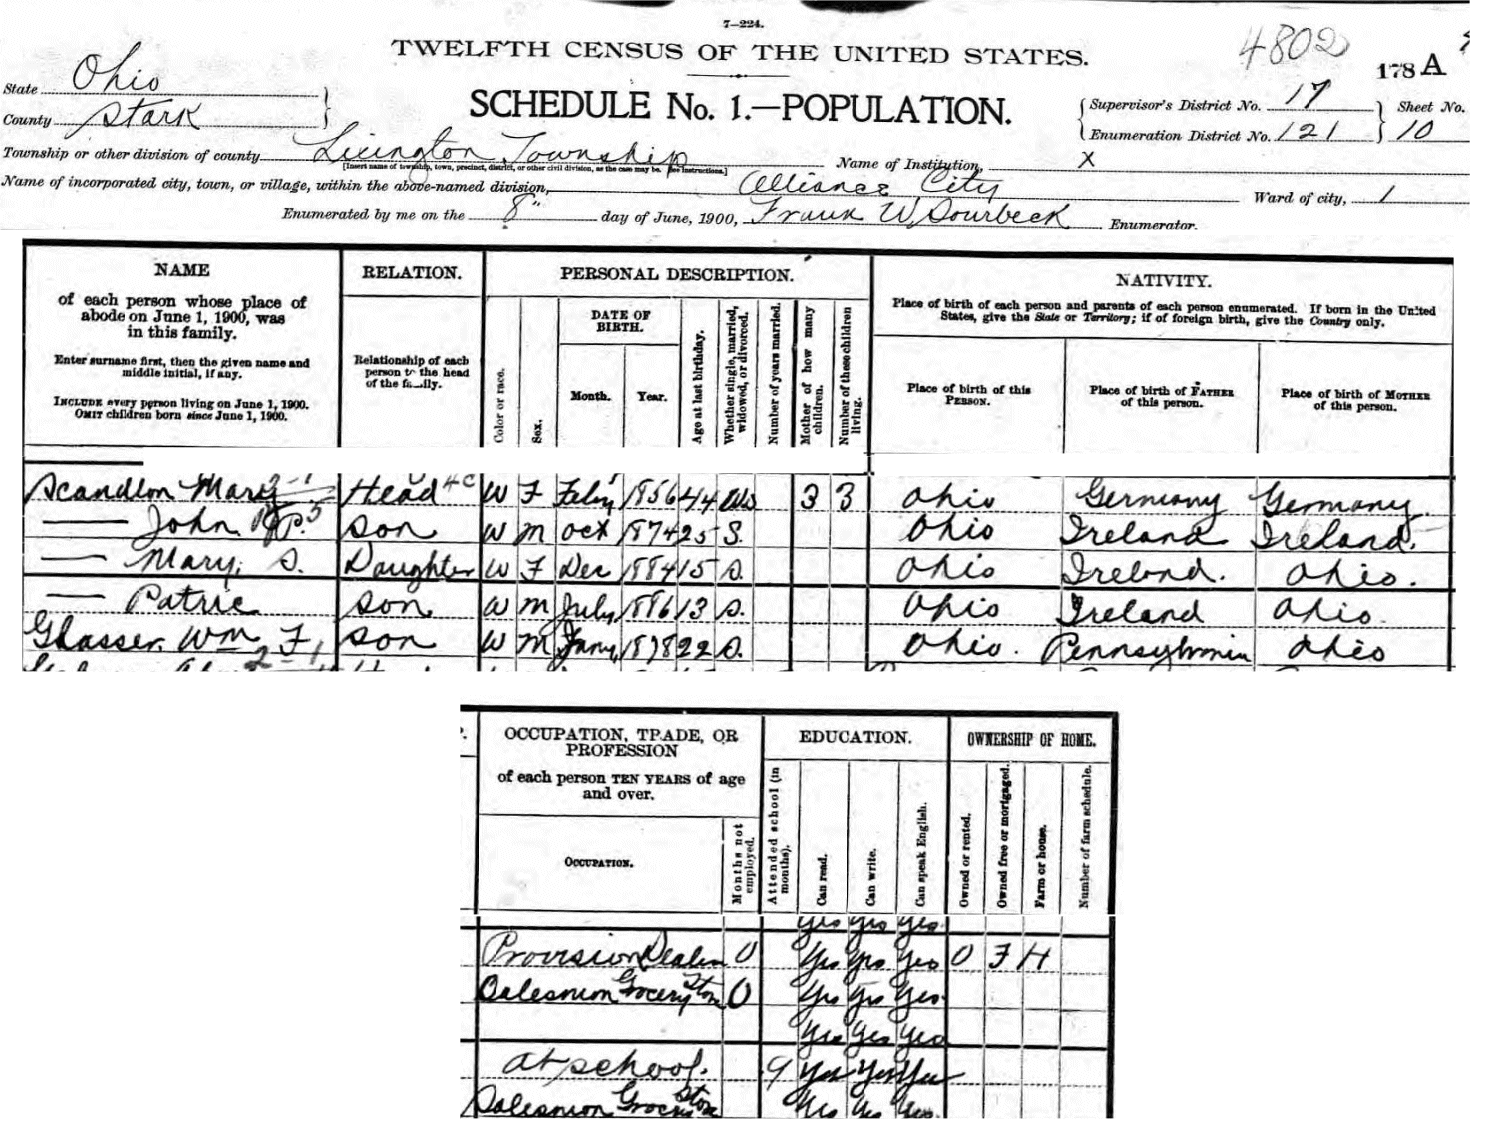 7—224.
4802
TWELFTH CENSUS OF THE UNITED STATES.
178 A
State Ohio
County Stark
SCHEDULE No. 1.—POPULATION.
Supervisor's District No. 17
Enumeration District No. 121
Sheet No.
10
Township or other division of county Lexington Township
[Insert name of township, town, precinct, district, or other civil division, as the case may be. See instructions.]
Name of Institution, X
Name of incorporated city, town, or village, within the above-named division, Alliance City
Ward of city, 1
Enumerated by me on the 8" day of June, 1900, Frank W. Sourbeck Enumerator.
NAME
of each person whose place of
abode on June 1, 1900, was
in this family.
Enter surname first, then the given name and
middle initial, if any.
INCLUDE every person living on June 1, 1900.
OMIT children born since June 1, 1900.
RELATION.
Relationship of each
person to the head
of the family.
PERSONAL DESCRIPTION.
Color or race.
Sex.
DATE OF
BIRTH.
Month.
Year.
Age at last birthday.
Whether single, married,
widowed, or divorced.
Number of years married.
Mother of how many
children.
Number of these children
living.
NATIVITY.
Place of birth of each person and parents of each person enumerated. If born in the United
States, give the State or Territory; if of foreign birth, give the Country only.
Place of birth of this
PERSON.
Place of birth of FATHER
of this person.
Place of birth of MOTHER
of this person.
Scandlon Mary Head W F Feby 1856 44 Wd 3 3 Ohio Germany Germany.
—— John P. son W M Oct 1874 25 S. Ohio Ireland Ireland.
—— Mary. S. Daughter W F Dec 1884 15 S. Ohio Ireland. Ohio.
—— Patric son W M July 1886 13 S. Ohio Ireland Ohio.
Glasser. Wm F, son W M Jany, 1878 22 S. Ohio. Pennsylvania Ohio
OCCUPATION, TRADE, OR
PROFESSION
of each person TEN YEARS of age
and over.
OCCUPATION.
Months not
employed.
EDUCATION.
Attended school (in
months).
Can read.
Can write.
Can speak English.
OWNERSHIP OF HOME.
Owned or rented.
Owned free or mortgaged.
Farm or house.
Number of farm schedule.
yes yes yes
Provision Dealer 0 yes yes yes O F H
Salesman Grocery Store 0 yes yes yes.
yes yes yes
at school. 9 yes yes yes
Salesman Grocery Store yes yes yes.